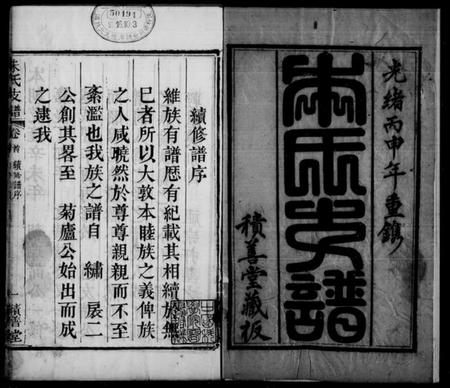 光緒丙申年重鐫
朱氏支譜
積善堂藏板
續修譜序
維族有譜歷有紀載其相續於無
已者所以大敦本睦族之義俾族
之人咸曉然於尊尊親親而不至
紊濫也我族之譜自 繡 扆二
公創其畧至 菊廬公始出而成
之逮我
朱氏支譜
卷首
續修譜序
一
積善堂
50494